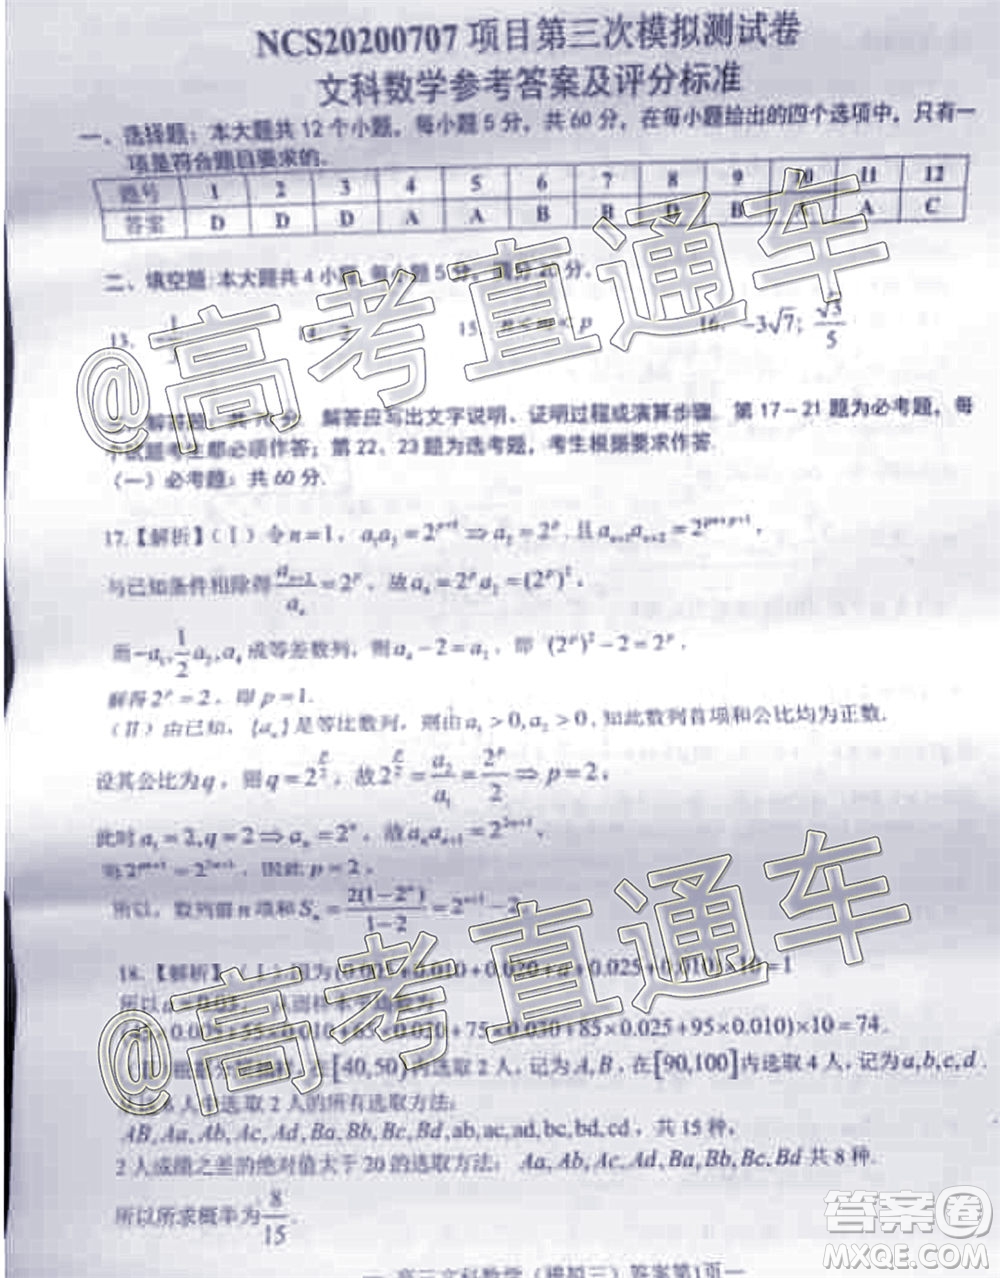 NCS20200707 项目第三次模拟测试卷
文科数学参考答案及评分标准
一、选择题：本大题共 12 个小题，每小题 5 分，共 60 分，在每小题给出的四个选项中，只有一
项是符合题目要求的.
题号 1 2 3 4 5 6 7 8 9 10 11 12
答案 D D D A A B B D B A C
二、填空题：本大题共 4 小题，每小题 5 分，满分 20 分.
13. 14. 2 15. n < m < p 16. −3√7; √3/5
三、解答题：共 70 分. 解答应写出文字说明、证明过程或演算步骤. 第 17－21 题为必考题，每
个试题考生都必须作答；第 22、23 题为选考题，考生根据要求作答.
（一）必考题：共 60 分.
17.【解析】(Ⅰ) 令 n=1, a₁a₂=2^{p+1} ⇒ a₂=2^p, 且 a_{n+1}a_{n+2}=2^{pn+p+1},
与已知条件相除得 a_{n+2}/a_n=2^p, 故 a₄=2^p a₂=(2^p)²,
而−a₁, ½a₂, a₄ 成等差数列, 则 a₄−2=a₂, 即 (2^p)²−2=2^p,
解得 2^p=2, 即 p=1.
(Ⅱ) 由已知, {a_n} 是等比数列, 则由 a₁>0, a₂>0, 知此数列首项和公比均为正数.
设其公比为 q, 则 q=2^{p/2}, 故 2^{p/2}=a₂/a₁=2^p/2 ⇒ p=2,
此时 a₁=2, q=2 ⇒ a_n=2^n, 故 a_n a_{n+1}=2^{2n+1},
而 2^{pn+1}=2^{2n+1}, 因此 p=2.
所以, 数列前 n 项和 S_n=2(1−2^n)/(1−2)=2^{n+1}−2
18.【解析】(Ⅰ) 因为(0.005+0.010+0.020+a+0.025+0.010)×10=1
所以 a=0.03, 从而样本平均数为
(45×0.005+55×0.010+65×0.020+75×0.030+85×0.025+95×0.010)×10=74.
在[40,50)内选取 2 人, 记为 A,B, 在[90,100]内选取 4 人, 记为 a,b,c,d.
从这 6 人中选取 2 人的所有选取方法:
AB,Aa,Ab,Ac,Ad,Ba,Bb,Bc,Bd,ab,ac,ad,bc,bd,cd, 共 15 种,
2 人成绩之差的绝对值大于 20 的选取方法: Aa,Ab,Ac,Ad,Ba,Bb,Bc,Bd 共 8 种.
所以所求概率为 8/15.
— 高三文科数学（模拟三）答案第1页 —
@高考直通车
@高考直通车
答案圈
MXQE.COM